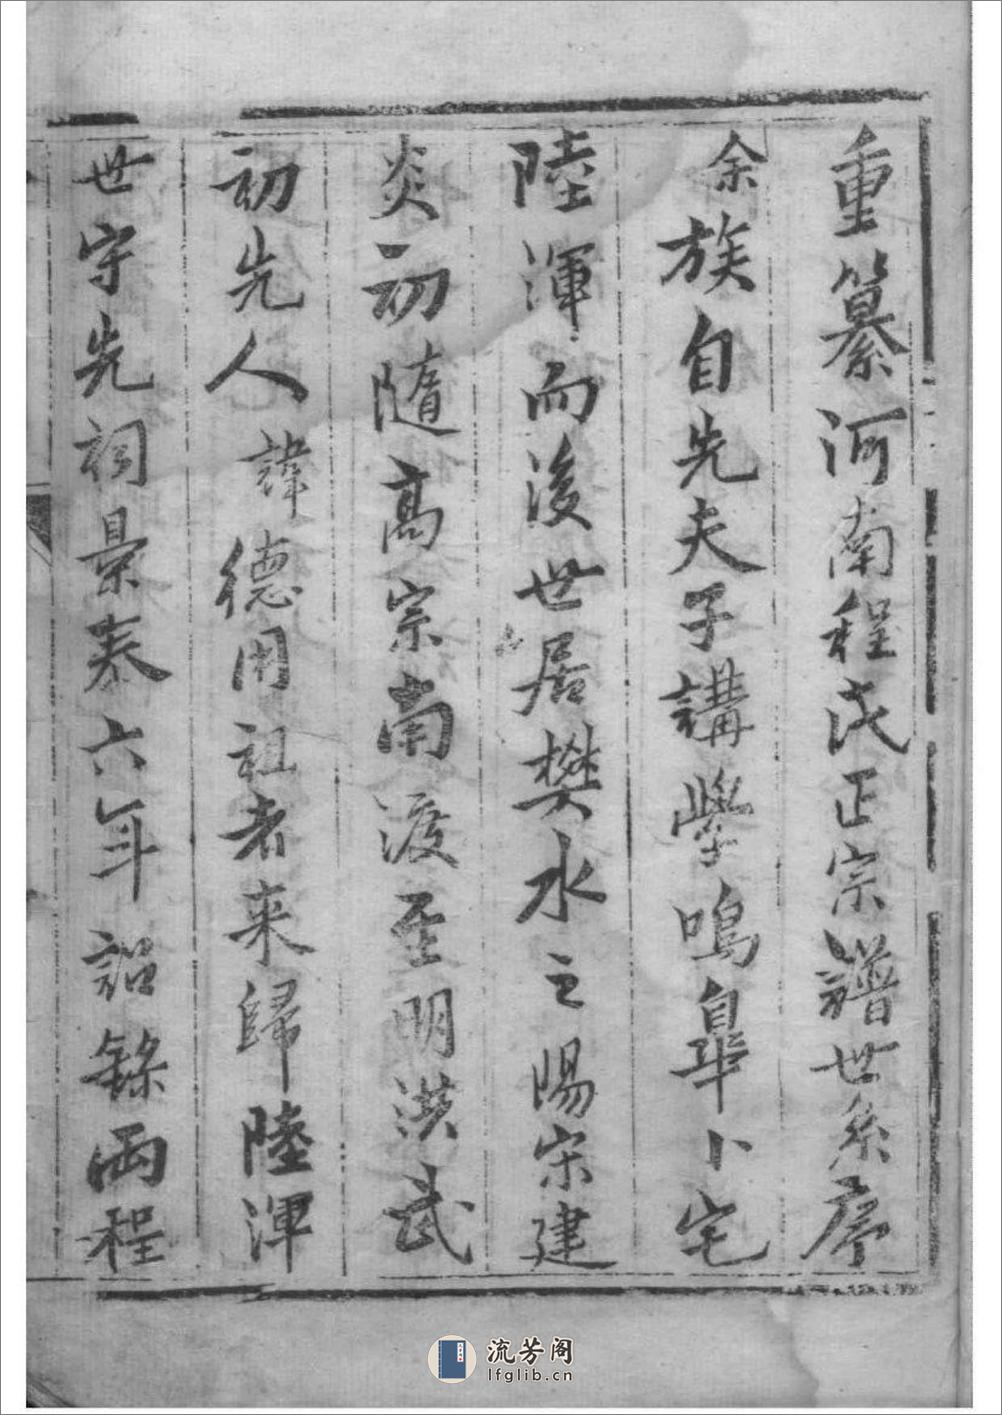 重纂河南程氏正宗譜世系序
余族自先夫子講學鳴皋卜宅
陸渾而後世居樊水之陽宋建
炎初隨高宗南渡至明洪武
初先人諱德用祖者来歸陸渾
世守先祠景泰六年詔錄兩程
流芳阁
lfglib.cn